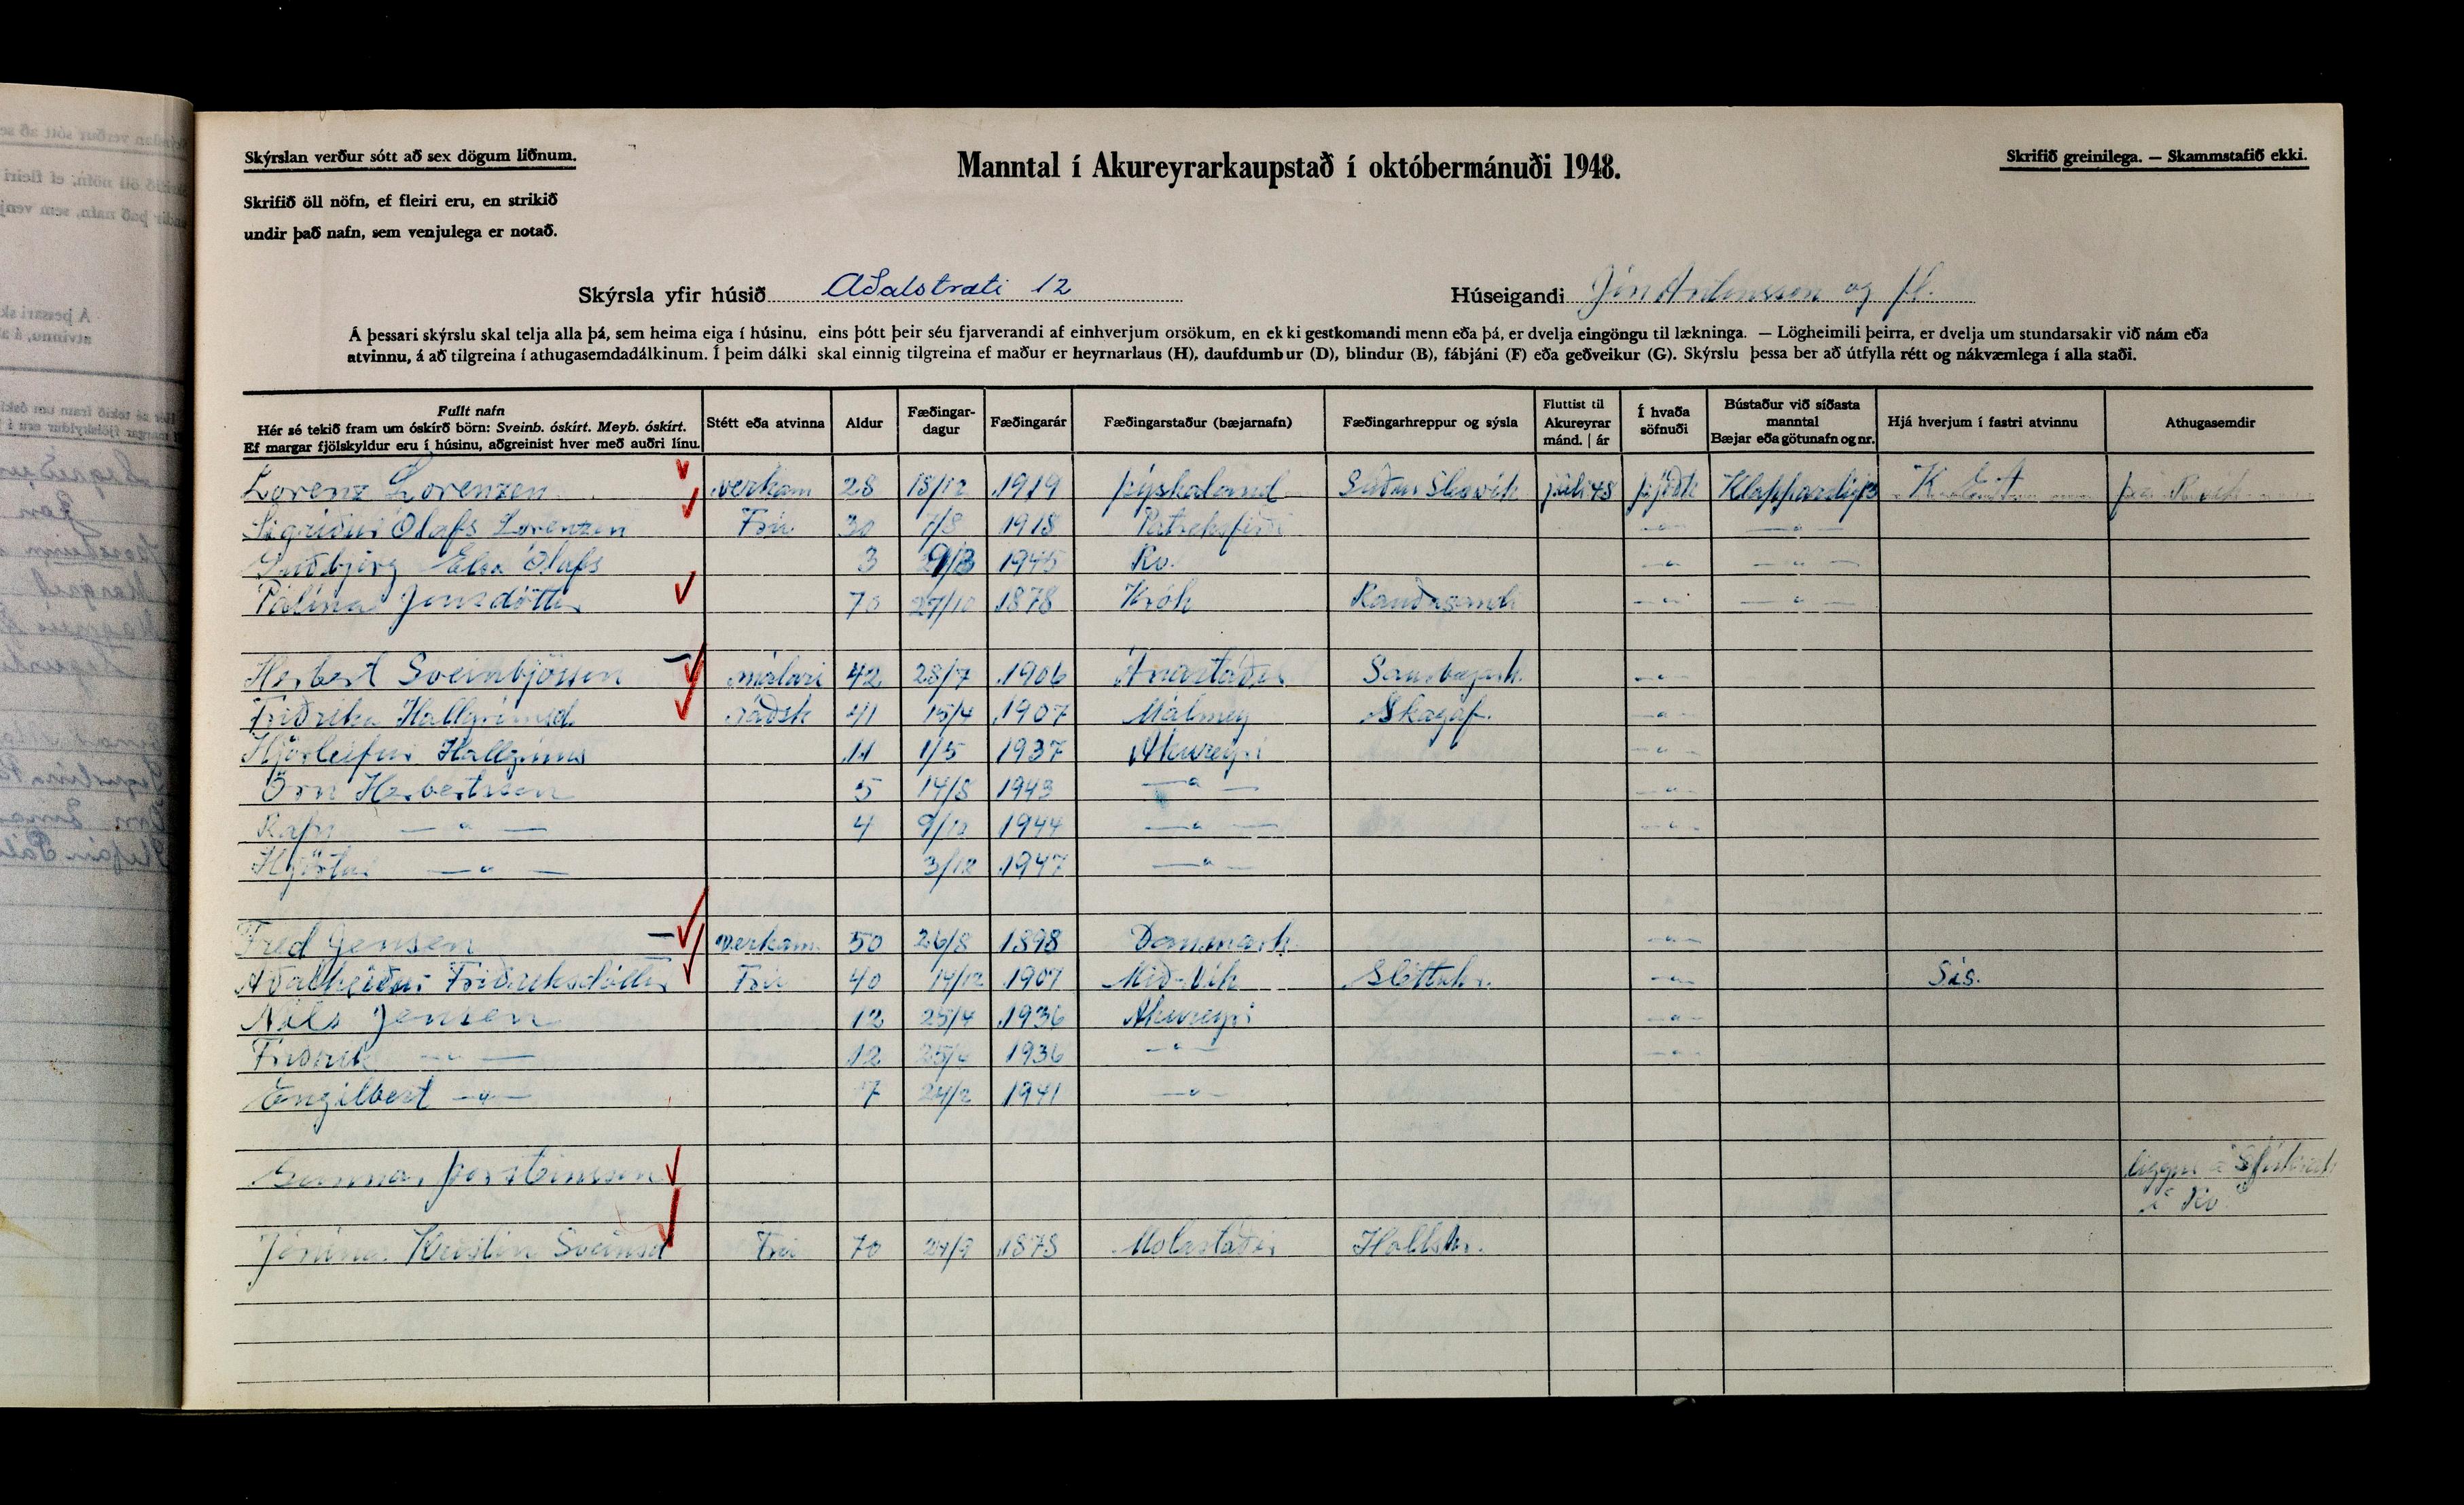 Skýrslan verður sótt að sex dögum liðnum.
Manntal í Akureyrarkaupstað í októbermánuði 1948.
Skrifið greinilega. — Skammstafið ekki.
Skrifið öll nöfn, ef fleiri eru, en strikið
undir það nafn, sem venjulega er notað.
Skýrsla yfir húsið Aðalstræti 12
Húseigandi Jón Antonsson og fl.
Á þessari skýrslu skal telja alla þá, sem heima eiga í húsinu, eins þótt þeir séu fjarverandi af einhverjum orsökum, en ekki gestkomandi menn eða þá, er dvelja eingöngu til lækninga. — Lögheimili þeirra, er dvelja um stundarsakir við nám eða
atvinnu, á að tilgreina í athugasemdadálkinum. Í þeim dálki skal einnig tilgreina ef maður er heyrnarlaus (H), daufdumbur (D), blindur (B), fábjáni (F) eða geðveikur (G). Skýrslu þessa ber að útfylla rétt og nákvæmlega í alla staði.
Fullt nafn
Hér sé tekið fram um óskírð börn: Sveinb. óskírt. Meyb. óskírt.
Ef margar fjölskyldur eru í húsinu, aðgreinist hver með auðri línu.
Stétt eða atvinna
Aldur
Fæðingar-
dagur
Fæðingarár
Fæðingarstaður (bæjarnafn)
Fæðingarhreppur og sýsla
Fluttist til
Akureyrar
mánd. | ár
Í hvaða
söfnuði
Bústaður við síðasta
manntal
Bæjar eða götunafn og nr.
Hjá hverjum í fastri atvinnu
Athugasemdir
Lorenz Lorenzen verkam 28 18/12 1919 Þýskaland júlí 48 þjóðk
Sigríður Ólafs Lorenzen Frú 30 7/8 1918 Patreksfirði -"- -"-
Guðbjörg Elsa Ólafs 3 1945 Rv. -"- -"-
Pálína Jensdóttir 70 27/10 1878 Krók Rauðasandi -"- -"-
Herbert Sveinbjörnsson málari 42 28/7 1906 Ánastaðir Saurbæjarh. -"-
Friðrika Hallgrímsd. ráðsk 41 15/4 1907 Málmey Skagaf. -"-
Hjörleifur Hallgríms 11 1/5 1937 Akureyri -"-
Örn Herbertsson 5 14/8 1943 -"- -"-
Rafn -"- 4 9/12 1944 -"- -"-
Hjörtur -"- 3/12 1947 -"-
Fred Jensen verkam. 50 26/8 1898 Danmark -"-
Aðalheiður Friðriksdóttir Frú 40 14/12 1907 Mið-Vík Sléttuhr. -"- Sís.
Níls Jensen 12 25/4 1936 Akureyri -"-
Friðrik -"- 12 25/4 1936 -"- -"-
Engilbert -"- 7 24/2 1941 -"-
Gunnar Þorsteinsson liggur á
í Rv.
Jórunn Kristín Sveinsd Frú 70 24/9 1878 Molastaðir